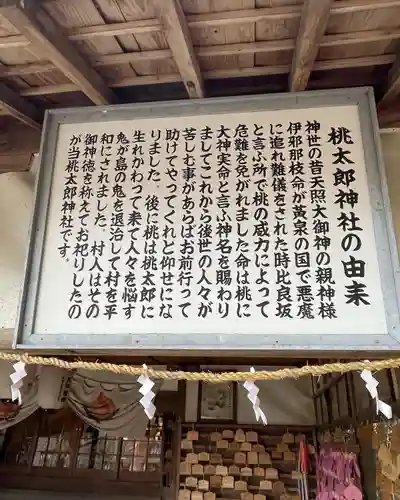 桃太郎神社の由来
神世の昔天照大御神の親神様
伊邪那枝命が黄泉の国で悪魔
に追れ難儀をされた時比良坂
と言ふ所で桃の威力によって
危難を免がれました命は桃に
大神実命と言ふ神名を賜わり
ましてこれから後世の人々が
苦しむ事があらばお前行って
助けてやってくれと仰せにな
りました．後に桃は桃太郎に
生れかわって来て人々を悩す
鬼が島の鬼を退治して村を平
和にされました．村人はその
御神徳を称えてお祀りしたの
が当桃太郎神社です。